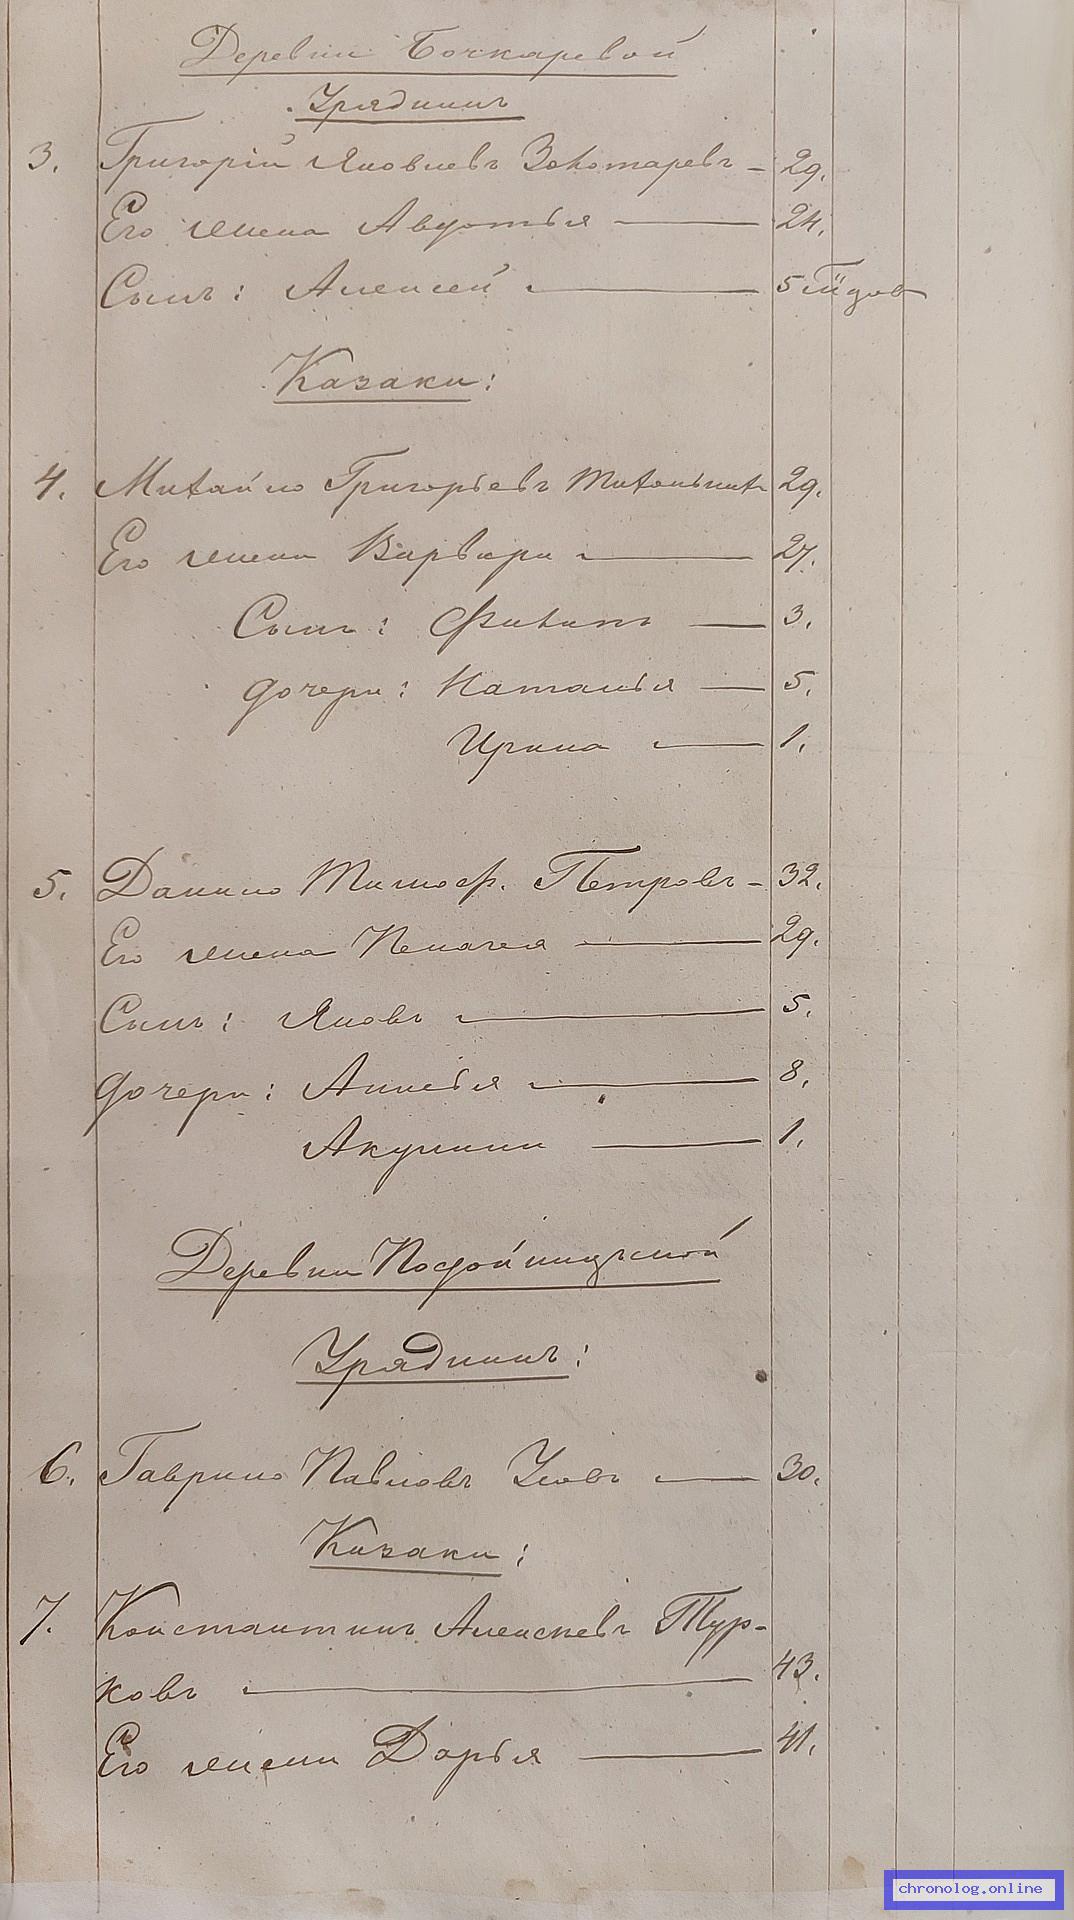 Деревни Бочкаревой
Урядникъ
3. Григорій Яковлевъ Золотаревъ - 29.
Его жена Авдотья 24.
Сынъ: Алексей 5 ти годов
Казаки:
4. Михайло Григорьевъ 29.
Его жена Варвара 27.
Сынъ: Филипъ 3.
дочери: Наталья 5.
Ирина 1.
5. Данило Тимоф. Петровъ - 32.
Его жена Пелагея 29.
Сынъ: Яковъ 5.
дочери: Анисья 8.
Акулина 1.
Деревни
Урядникъ:
6. Гаврило Павловъ Усовъ 30.
Казаки:
7. Константинъ Алексеевъ Тур-
ковъ 43.
Его жена Дарья 41.
chronolog.online